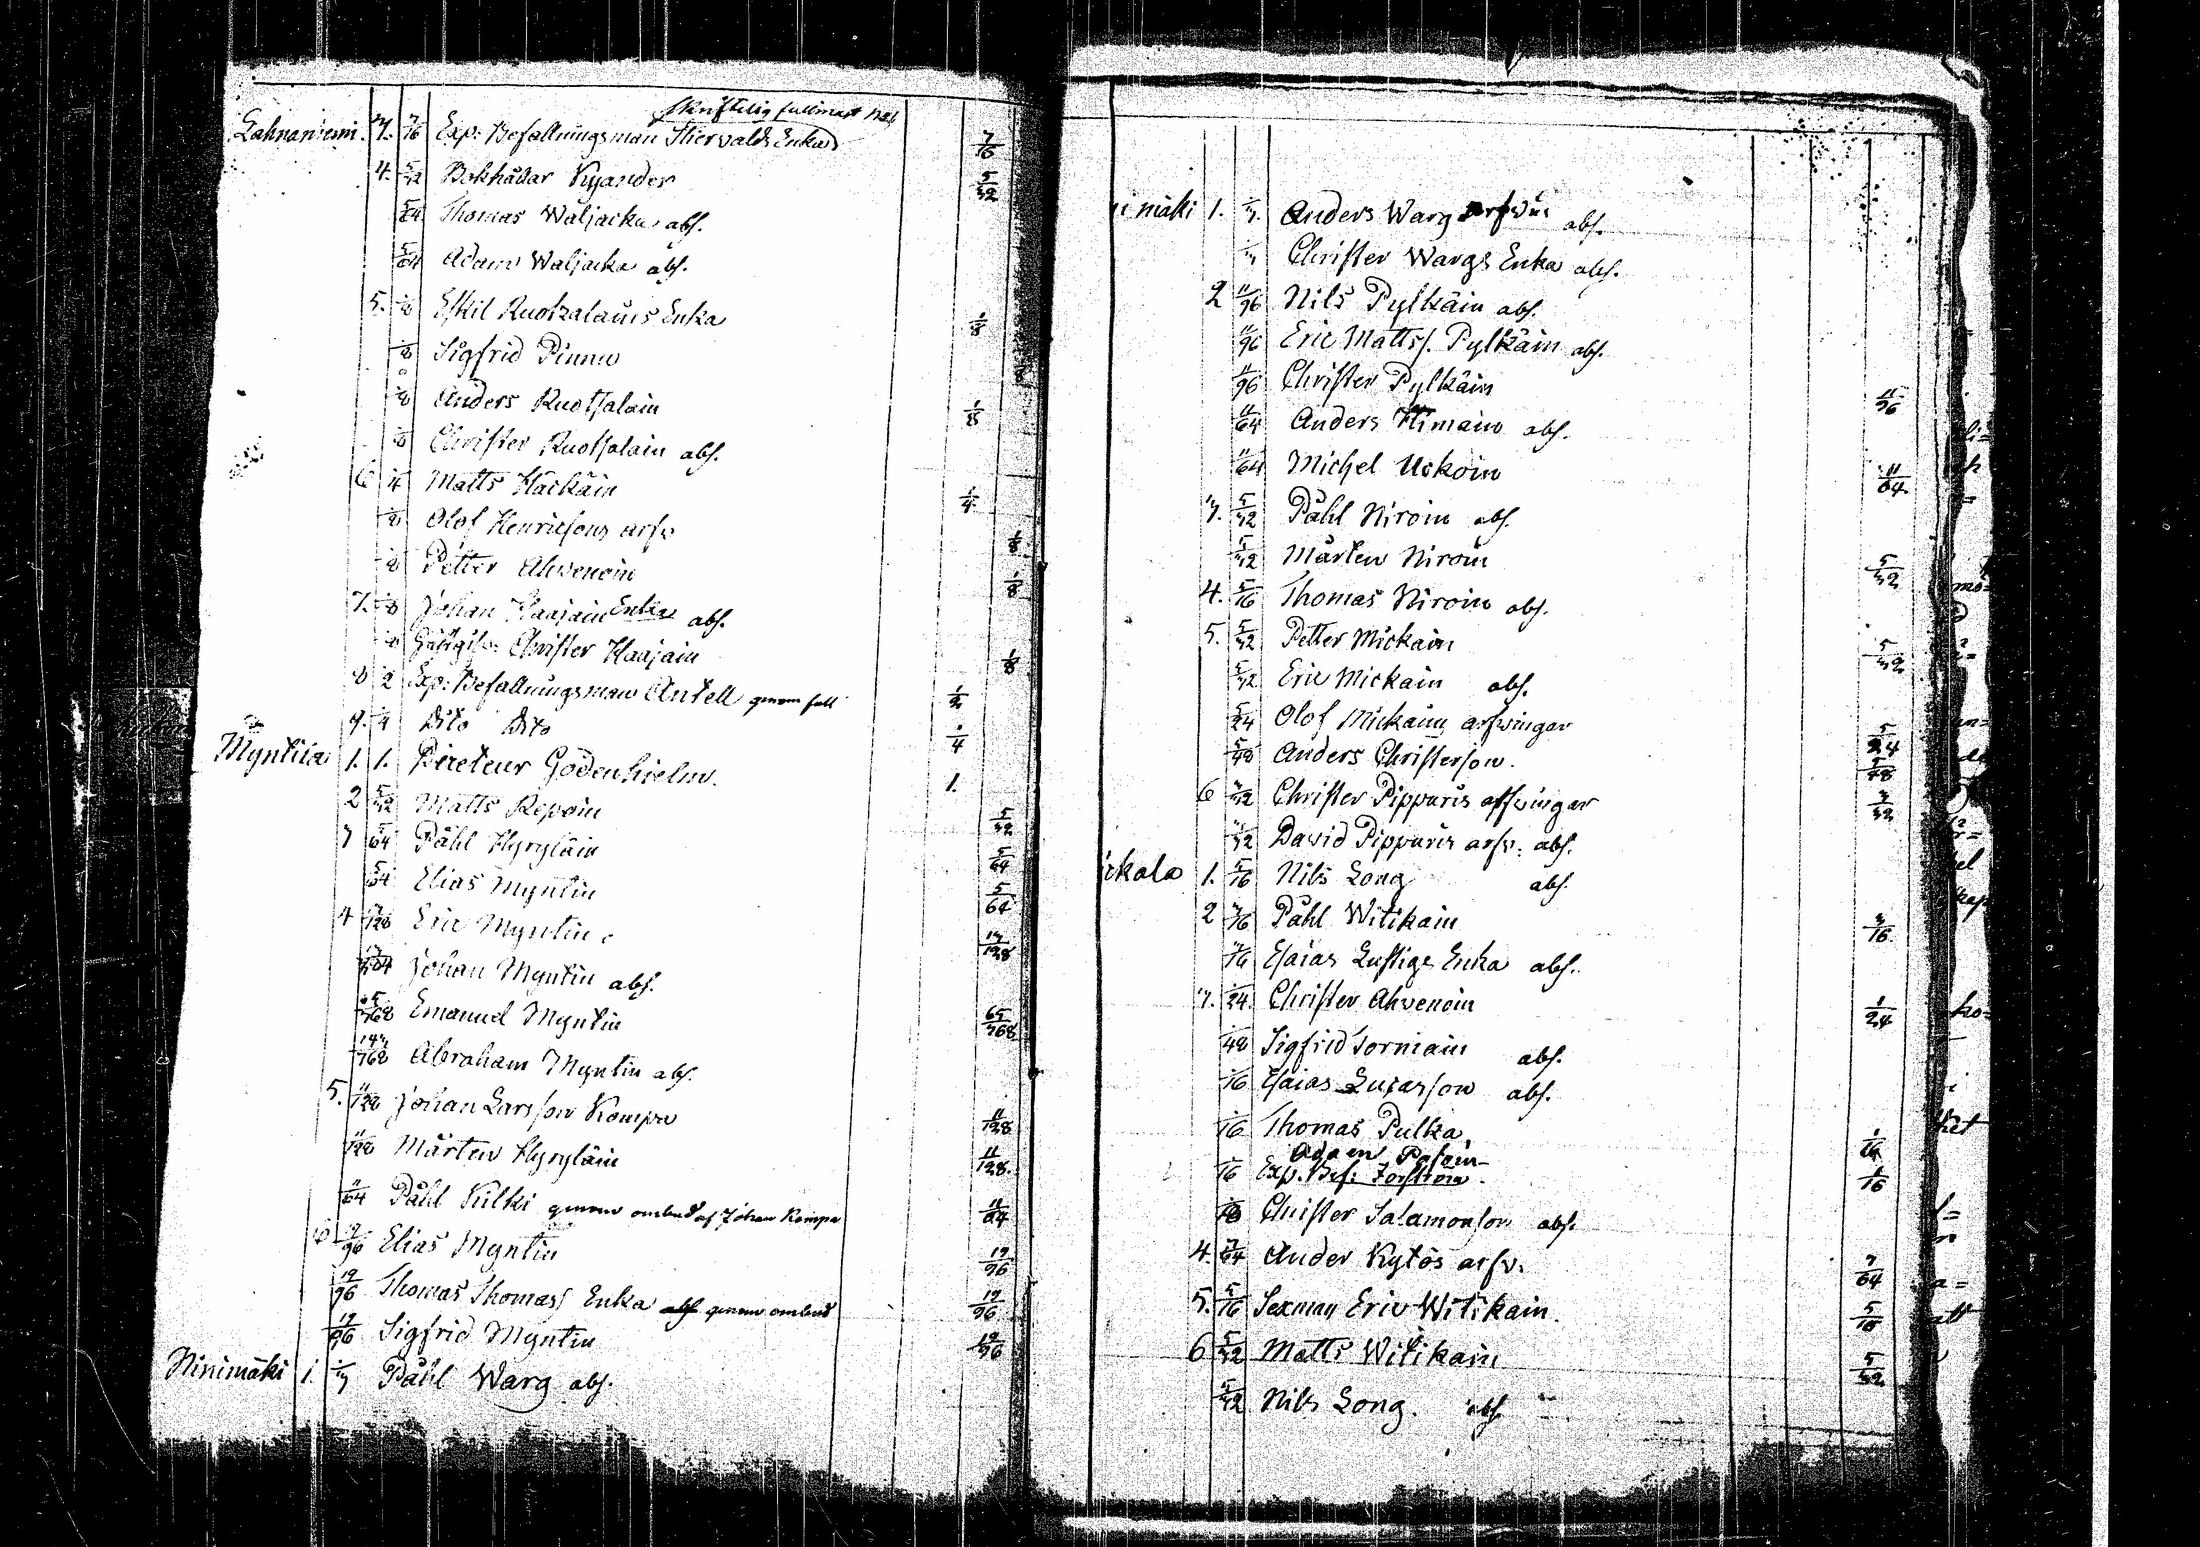 Skriftelig fullmakt N:1
Lahnaniemi. 3. 7/16 Exp: Befallningsman Stiervalds Enka 7/16
4. 5/32 Bokhållar Kyander 5/32
5/64 Thomas Waljacka abs.
5/64 Adam Waljacka abs.
5. 1/8 Eskil Ruotzalains Enka 1/8
1/8 Sigfrid Pinnu
1/8 Anders Ruotsalain 1/8
1/8 Christer Ruotsalain abs.
6 1/4 Matts Häckäin 1/4
1/8 Olof Henricsons arfv 1/8
1/8 Petter Ahvenoin 1/8
7. 1/8 Johan Haajain Enka abs.
1/8 Christer Haajain 1/8
8 1/2 Exp: Befallningsman Antell genom full 1/2
9. 1/4 Dito Dito 1/4
Myntiia 1. 1. Direteur Gödenhielm. 1.
2 5/32 Matts Repoin 5/32
3 5/64 Påhl Hyryläin 5/64
5/64 Elias Myntin 5/64
4 13/128 Eric Myntin 13/128
Johan Myntin abs.
65/768 Emanuel Myntin 65/768
143/768 Abraham Myntin abs.
5. 11/128 Johan Larsson Kompa 11/128
11/128 Mårten Hyryläin 11/128.
11/64 Påhl Kilki genom ombud af Johan Kompa 11/64
6 19/96 Elias Myntin 19/96
19/96 Thomas Thomass Enka abs genom ombud 19/96
19/96 Sigfrid Myntin 19/96
Ninimäki 1. 1/3 Påhl Warg abs.
nimäki 1. 1/3. Anders Warg arfvin abs.
1/3 Christer Wargs Enka abs.
2 11/96 Nils Pylkäin abs.
11/96 Eric Mattss. Pylkäin abs.
11/96 Christer Pylkäin 11/96
11/64 Anders Himain abs.
11/64 Michel Uckoin 11/64.
3. 5/32 Påhl Niroin abs.
5/32 Mårten Niroin 5/32
4. 5/16 Thomas Niroin abs.
5. 5/32 Petter Mickain 5/32
5/32 Eric Mickain abs.
5/24 Olof Mickain arfvingar 5/24
5/48 Anders Christerson. 5/48
6 3/32 Christer Pippuris arfvingar 3/32
3/32 David Pippuris arfv: abs.
ickala 1. 5/16 Nils Long abs.
2 3/16 Påhl Witikain 3/16.
1/16 Esaias Lustigs Enka abs.
3. 1/24. Christer Ahvenoin 1/24
1/48 Sigfrid Torniain abs.
1/16 Esaias Lucasson abs.
1/16 Thomas Pulka 1/16
Adam Paloin
1/16 Exp. Bef: Forström. 1/16
Christer Salamonson abs.
4. 7/64 Ander Kytös arfv. 7/64
5. 5/16 Sexman Eric Witikain. 5/16
6 5/32 Matts Witikain 5/32
5/32 Nils Long. abs